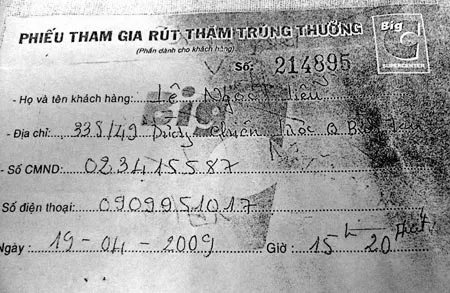 PHIẾU THAM GIA RÚT THĂM TRÚNG THƯỞNG
(Phần dành cho khách hàng)
Big C
SUPERCENTER
Số: 214895
- Họ và tên khách hàng: Lê Ngọc
- Địa chỉ: 335/42 Chiến
- Số CMND: 023415587
Số điện thoại: 0909951017
Ngày: 19-04-2009 Giờ: 15h 20
Big